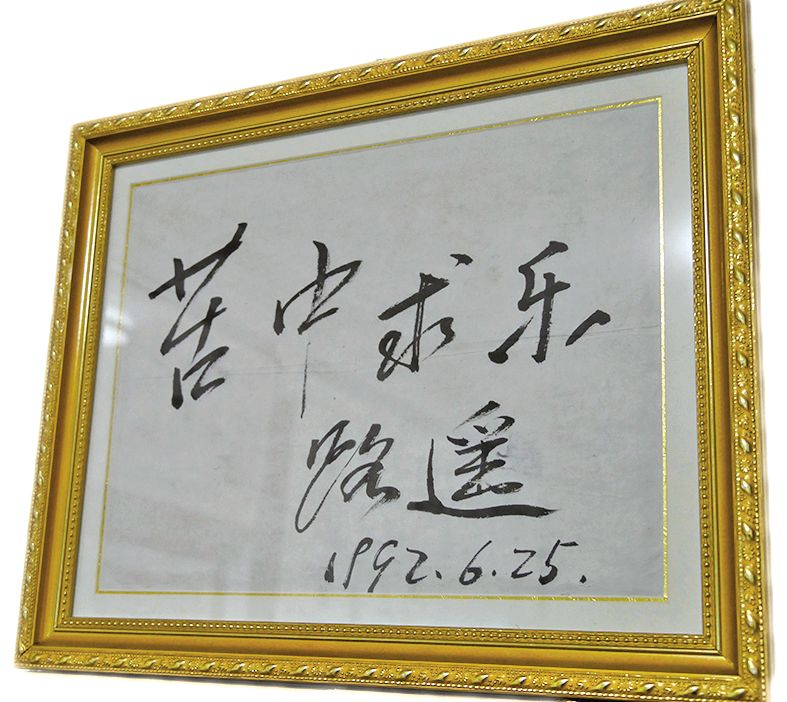 苦中求乐
路遥
1992.6.25.